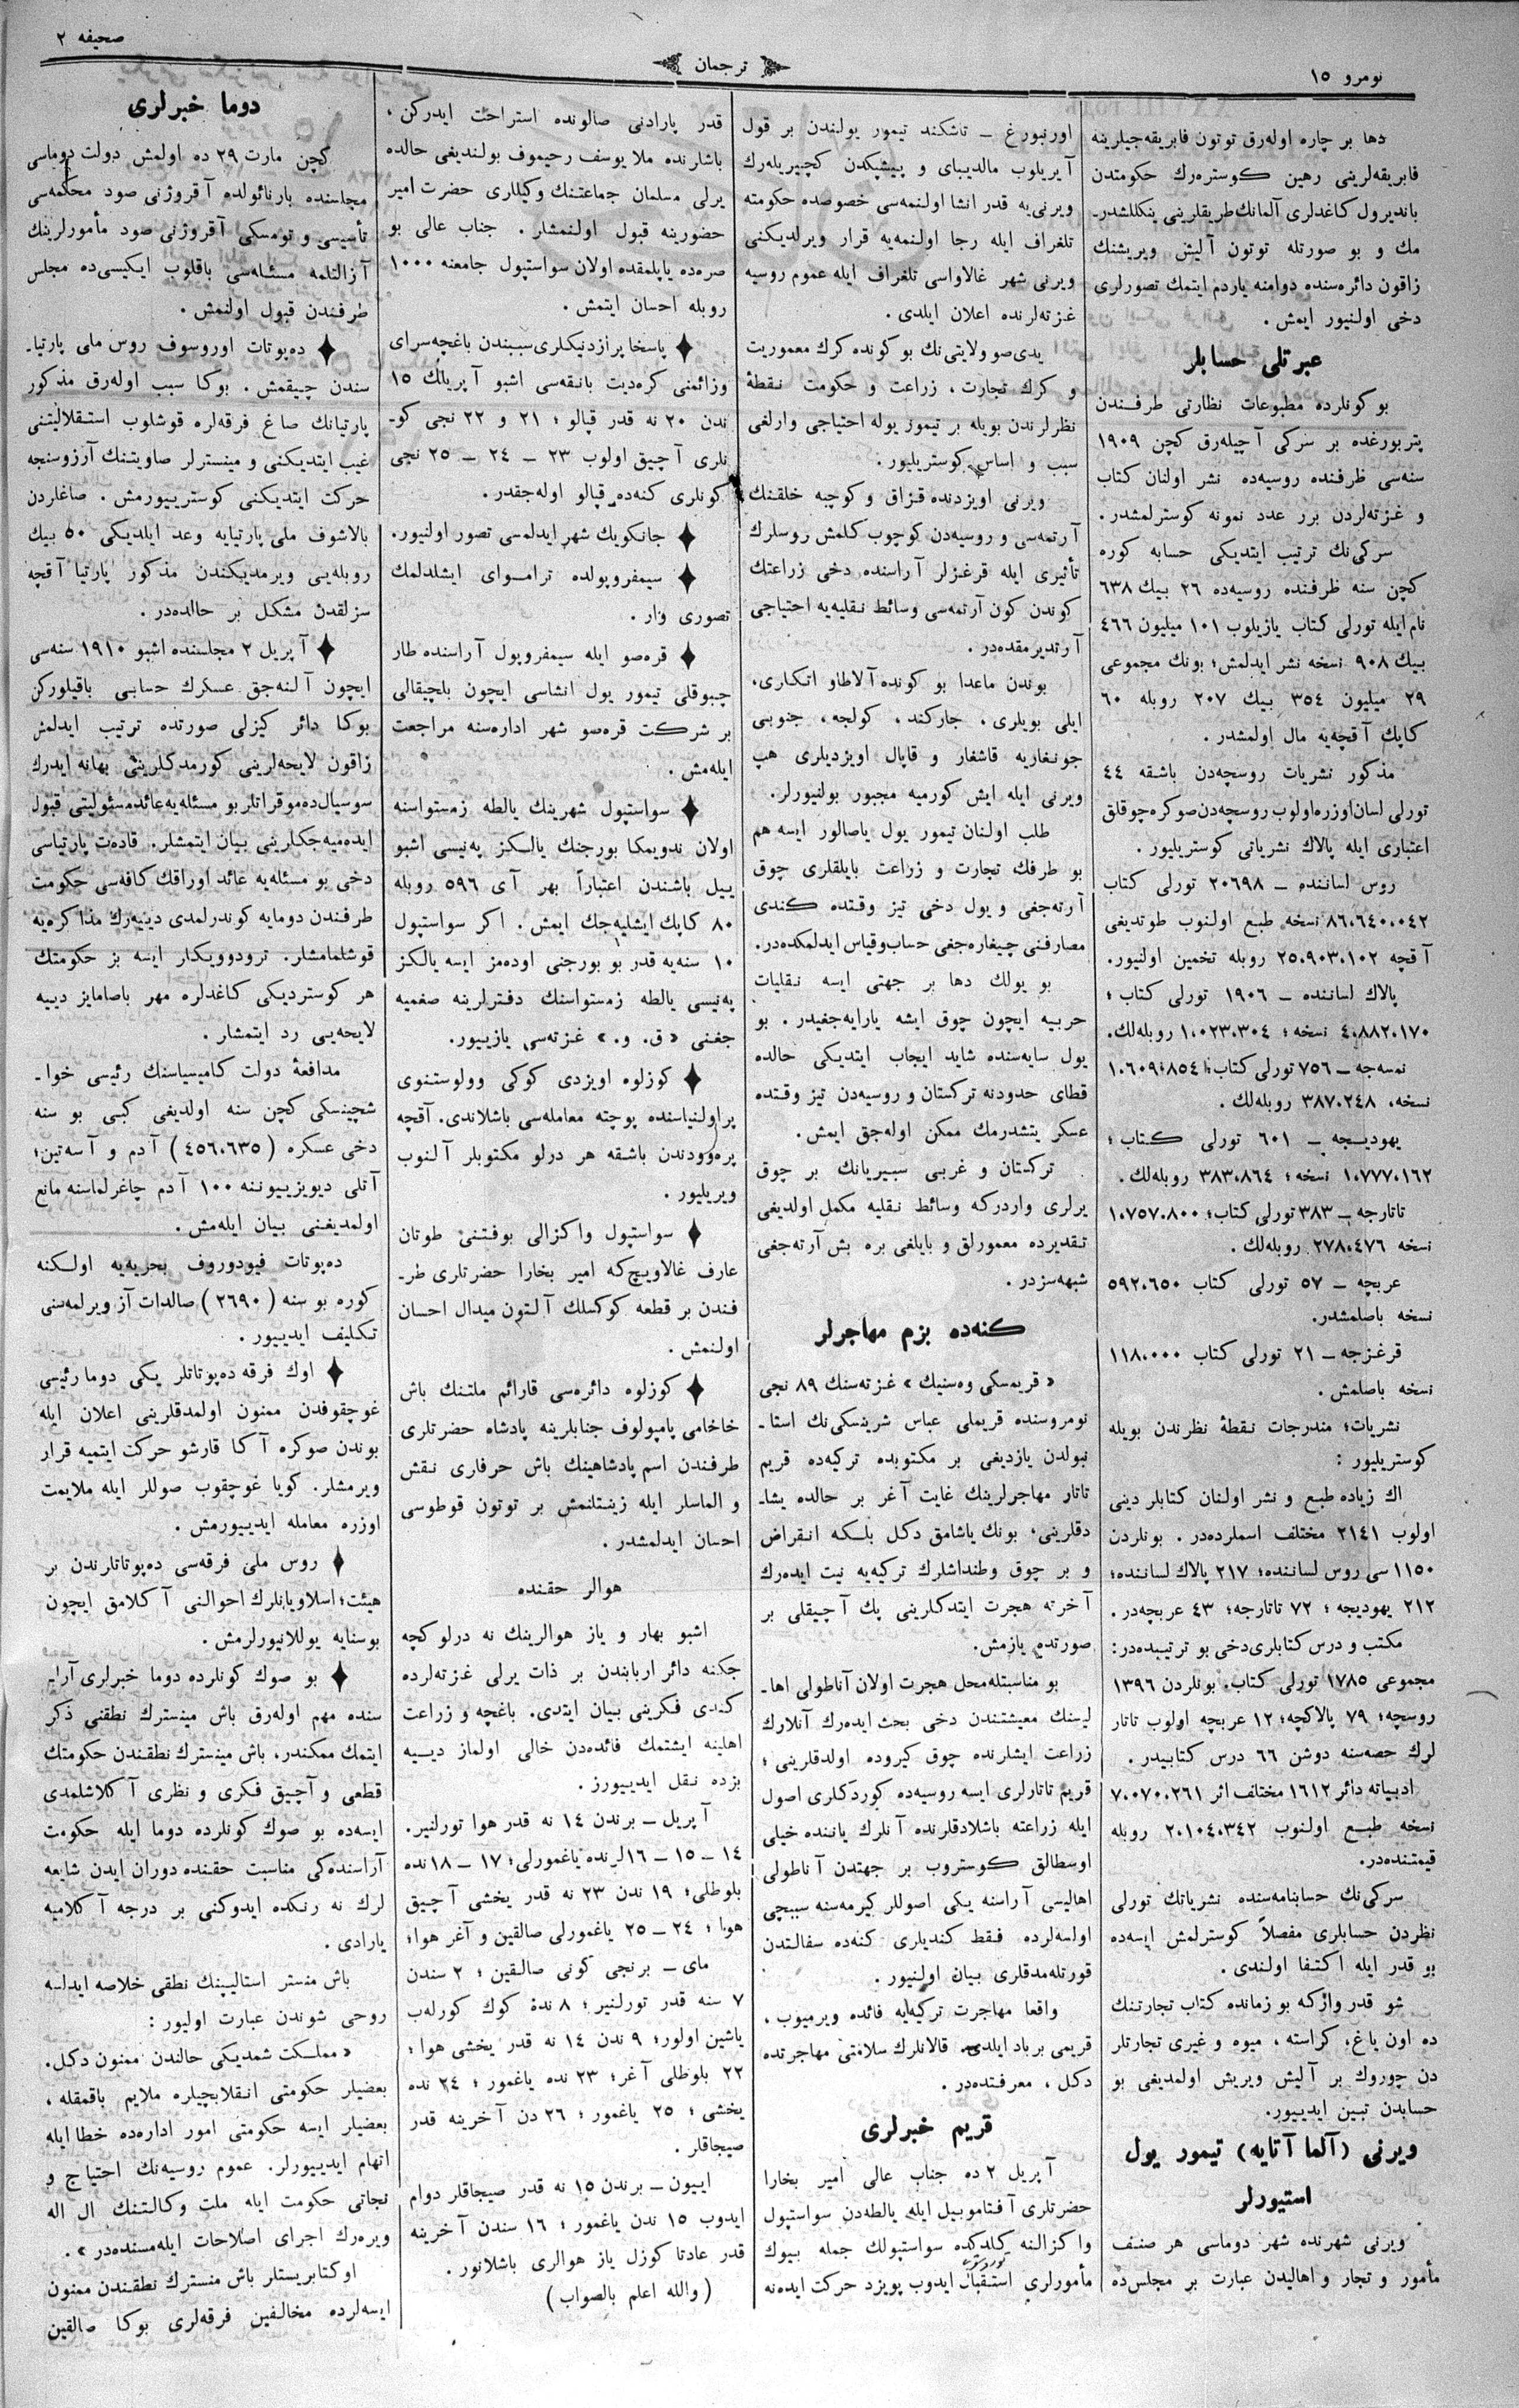 نومرو ١٥
ترجمان
صحيفه ٢
دها بر چاره اوله‌رق توتون فابريقه‌جيلرينه
فابريقه‌لرينى رهين كوستره‌رك حكومتدن
بانديرول كاغدلرى آلمانك طريقلرينى ينكللشدر-
مك و بو صورتله توتون آليش ويريشنك
زاقون دائره‌سنده دوامنه ياردم ايتمك تصورلرى
دخى اولنيور ايمش.
عبرتلى حسابلر
بو كونلرده مطبوعات نظارتى طرفندن
پتربورغده بر سركى آچيله‌رق كچن ١٩٠٩
سنه‌سى ظرفنده روسيه‌ده نشر اولنان كتاب
و غزته‌لردن برر عدد نمونه كوسترلمشدر.
سركى‌نك ترتيب ايتديكى حسابه كوره
كچن سنه ظرفنده روسيه‌ده ٢٦ بيك ٦٣٨
نام ايله تورلى كتاب يازيلوب ١٠١ ميليون ٤٦٦
بيك ٩٠٨ نسخه نشر ايدلمش؛ بونك مجموعى
٢٩ ميليون ٣٥٤ بيك ٢٠٧ روبله ٦٠
كاپك آقچه‌يه مال اولمشدر.
مذكور نشريات روسچه‌دن باشقه ٤٤
تورلى لسان اوزره اولوب روسچه‌دن صوكره چوقلق
اعتبارى ايله پالاك نشرياتى كوستريليور.
روس لساننده — ٢٠٦٩٨ تورلى كتاب
٨٦،٦٤٠،٠٤٢ نسخه طبع اولنوب طوتديغى
آقچه ٢٥،٩٠٣،١٠٢ روبله تخمين اولنيور.
پالاك لساننده — ١٩٠٦ تورلى كتاب؛
٤،٨٨٢،١٧٠ نسخه؛ ١،٠٢٣،٣٠٤ روبله‌لك.
نمسه‌جه — ٧٥٦ تورلى كتاب؛ ١،٦٠٩،٨٥٤
نسخه، ٣٨٧،٢٤٨ روبله‌لك.
يهوديجه — ٦٠١ تورلى كتاب؛
١،٧٧٧،١٦٢ نسخه؛ ٣٨٣،٨٦٤ روبله‌لك.
تاتارجه — ٣٨٣ تورلى كتاب؛ ١،٧٥٧،٨٠٠
نسخه ٢٧٨،٤٧٦ روبله‌لك.
عربچه — ٥٧ تورلى كتاب ٥٩٢،٦٥٠
نسخه باصلمشدر.
قرغزجه — ٢١ تورلى كتاب ١١٨،٠٠٠
نسخه باصلمش.
نشريات؛ مندرجات نقطهٔ نظرندن بويله
كوستريليور:
اك زياده طبع و نشر اولنان كتابلر دينى
اولوب ٢١٤١ مختلف اسملرده‌در. بونلردن
١١٥٠ سى روس لساننده؛ ٢١٧ پالاك لساننده؛
٢١٢ يهوديجه؛ ٧٢ تاتارجه؛ ٤٣ عربچه‌در.
مكتب و درس كتابلرى دخى بو ترتيبده‌در:
مجموعى ١٧٨٥ تورلى كتاب. بونلردن ١٣٩٦
روسچه؛ ٧٩ پالاكچه؛ ١٢ عربچه اولوب تاتار
لرك حصه‌سنه دوشن ٦٦ درس كتابيدر.
ادبياته دائر ١٦١٢ مختلف اثر ٧،٠٧٠،٢٦١
نسخه طبع اولنوب ٢،١٠٤،٣٤٢ روبله
قيمتنده‌در.
سركى‌نك حسابنامه‌سنده نشرياتك تورلى
نظردن حسابلرى مفصلاً كوسترلمش ايسه‌ده
بو قدر ايله اكتفا اولندى.
شو قدر وارکه بو زمانده كتاب تجارتنك
ده اون ياغ، كراسته، ميوه و غيرى تجارتلر
دن چوروك بر آليش ويريش اولمديغى بو
حسابدن تبين ايدييور.
ويرنى (آلما آتايه) تيمور يول
استيورلر
ويرنى شهرنده شهر دوماسى هر صنف
مأمور و تجار و اهاليدن عبارت بر مجلس‌ده
اورنبورغ — تاشكند تيمور يولندن بر قول
آيريلوب مالديباى و پيشپكدن كچيريله‌رك
ويرنى‌يه قدر انشا اولنمه‌سى خصوصده حكومته
تلغراف ايله رجا اولنمه‌يه قرار ويرلديكنى
ويرنى شهر غالاواسى تلغراف ايله عموم روسيه
غزته‌لرنده اعلان ايلدى.
يدى‌صو ولايتى‌نك بو كونده كرك معموريت
و كرك تجارت، زراعت و حكومت نقطهٔ
نظرلرندن بويله بر تيمور يوله احتياجى وارلغى
سبب و اساس كوستريليور.
ويرنى اويزدنده قزاق و كوچبه خلقنك
آرتمه‌سى و روسيه‌دن كوچوب كلمش روسلرك
تأثيرى ايله قرغزلر آراسنده دخى زراعتك
كوندن كون آرتمه‌سى وسائط نقليه‌يه احتياجى
آرتديرمقده‌در.
بوندن ماعدا بو كونده آلاطاو اتكلرى،
ايلى بويلرى، جاركند، كولجه، جنوبى
جونغاريه قاشغار و قاپال اويزديلرى هپ
ويرنى ايله ايش كورميه مجبور بولنيورلر.
طلب اولنان تيمور يول ياصالور ايسه هم
بو طرفك تجارت و زراعت بايلقلرى چوق
آرته‌جغى و يول دخى تيز وقتده كندى
مصارفنى چيغاره‌جغى حساب و قياس ايدلمكده‌در.
بو يولك دها بر جهتى ايسه نقليات
حربيه ايچون چوق ايشه يارايه‌جغيدر. بو
يول سايه‌سنده شايد ايجاب ايتديكى حالده
قطاى حدودنه تركستان و روسيه‌دن تيز وقتده
عسكر يتشدرمك ممكن اوله‌جق ايمش.
تركستان و غربى سبيريانك بر چوق
يرلرى واردركه وسائط نقليه مكمل اولديغى
تقديرده معمورلق و بايلغى بره بش آرته‌جغى
شبهه‌سزدر.
كنه‌ده بزم مهاجرلر
«قريمسكى وه‌ستنيك» غزته‌سنك ٨٩ نجى
نومروسنده قريملى عباس شرينسكى‌نك استا-
نبولدن يازديغى بر مكتوبده تركيه‌ده قريم
تاتار مهاجرلرينك غايت آغر بر حالده يشا-
دقلرينى، بونك ياشامق دكل بلكه انقراض
و بر چوق وطنداشلرك تركيه‌يه نيت ايده‌رك
آخرته هجرت ايتدكلرينى پك آچيقلى بر
صورتده يازمش.
بو مناسبتله محل هجرت اولان آناطولى اها-
ليسنك معيشتندن دخى بحث ايده‌رك آنلارك
زراعت ايشلرنده چوق كيروده اولدقلرينى؛
قريم تاتارلرى ايسه روسيه‌ده كوردكلرى اصول
ايله زراعته باشلادقلرنده آنلرك ياننده خيلى
اوسطالق كوستروب بر جهتدن آناطولى
اهاليسى آراسنه يكى اصوللر كيرمه‌سنه سببچى
اولسه‌لرده فقط كنديلرى كنه‌ده سفالتدن
قورتله‌مدقلرى بيان اولنيور.
واقعا مهاجرت تركيه‌يه فائده ويرميوب،
قريمى برباد ايلدى. قالانلرك سلامتى مهاجرتده
دكل، معرفتده‌در.
قريم خبرلرى
آپريل ٢ ده جناب عالى امير بخارا
حضرتلرى آفتاموبيل ايله يالطه‌دن سواستپول
واكزالنه كلدكده سواستپولك جمله بيوك
مأمورلرى استقبال ايدوب پويزد حركت ايده‌نه
قدر پارادنى صالونده استراحت ايدركن،
باشلرنده ملا يوسف رحيموف بولنديغى حالده
يرلى مسلمان جماعتنك وكيللرى حضرت امير
حضورينه قبول اولنمشلر. جناب عالى بو
صره‌ده ياپلمقده اولان سواستپول جامعنه ١٠٠٠
روبله احسان ايتمش.
♦ پاسخا پرازدنيكلرى سببندن باغچه‌سراى
وزائمنى كره‌ديت بانقه‌سى اشبو آپريلك ١٥
ندن ٢٠ نه قدر قپالو؛ ٢١ و ٢٢ نجى كو-
نلرى آچيق اولوب ٢٣ — ٢٤ — ٢٥ نجى
كونلرى كنه‌ده قپالو اوله‌جقدر.
♦ جانكويك شهر ايدلمسى تصور اولنيور.
♦ سيمفروپولده تراموای ايشلدلمك
تصورى وار.
♦ قره‌صو ايله سيمفروپول آراسنده طار
چبوقلى تيمور يول انشاسى ايچون بلچيقالى
بر شركت قره‌صو شهر اداره‌سنه مراجعت
ايله‌مش.
♦ سواستپول شهرينك يالطه زمستواسنه
اولان ندويمكا بورجنك يالكز په‌نيسى اشبو
ييل باشندن اعتباراً بهر آى ٥٩٦ روبله
٨٠ كاپك ايشليه‌جك ايمش. اكر سواستپول
١٠ سنه‌يه قدر بو بورجنى اوده‌مز ايسه يالكز
په‌نيسى يالطه زمستواسنك دفترلرينه صغميه
جغنى «ق. و.» غزته‌سى يازييور.
♦ كوزلوه اويزدى كوكى وولوستنوى
پراولنياسنده پوچته معامله‌سى باشلاندى. آقچه
پره‌وودندن باشقه هر درلو مكتوبلر آلنوب
ويريليور.
♦ سواستپول واكزالى بوفتنى طوتان
عارف غالاويچ‌كه امير بخارا حضرتلرى طر-
فندن بر قطعه كوكسلك آلتون ميدال احسان
اولنمش.
♦ كوزلوه دائره‌سى قارائم ملتنك باش
خاخامى پامپولوف جنابلرينه پادشاه حضرتلرى
طرفندن اسم پادشاهينك باش حرفلرى نقش
و الماسلر ايله زينتلنمش بر توتون قوطوسى
احسان ايدلمشدر.
هوالر حقنده
اشبو بهار و ياز هوالرينك نه درلو كچه
جكنه دائر اربابندن بر ذات يرلى غزته‌لرده
كندى فكرينى بيان ايتدى. باغچه و زراعت
اهلينه ايشتمك فائده‌دن خالى اولماز دييه
بزده نقل ايدييورز.
آپريل — برندن ١٤ نه قدر هوا تورلنير.
١٤ — ١٥ — ١٦ لرنده ياغمورلى؛ ١٧ — ١٨ نده
بلوطلى؛ ١٩ ندن ٢٣ نه قدر يخشى آچيق
هوا؛ ٢٤ — ٢٥ ياغمورلى صالقين و آغر هوا؛
ماى — برنجى كونى صالقين؛ ٢ سندن
٧ سنه قدر تورلنير؛ ٨ ندۀ كوك كورلەب
ياشين اولور؛ ٩ ندن ١٤ نه قدر يخشى هوا؛
٢٢ بلوطلى آغر؛ ٢٣ نده ياغمور؛ ٢٤ نده
يخشى؛ ٢٥ ياغمور؛ ٢٦ دن آخرينه قدر
صيجاقلر.
اييون — برندن ١٥ نه قدر صيجاقلر دوام
ايدوب ١٥ ندن ياغمور؛ ١٦ سندن آخرينه
قدر عادتا كوزل ياز هوالرى باشلانور.
(والله اعلم بالصواب)
دوما خبرلرى
كچن مارت ٢٩ ده اولمش دولت دوماسى
مجلسنده بارنائولده آقروژنى صود محكمه‌سى
تأسيسى و تومسكى آقروژنى صود مأمورلرينك
آزالتلمه مسئله‌سى باقلوب ايكيسى‌ده مجلس
طرفندن قبول اولنمش.
♦ ده‌پوتات اوروسوف روس ملى پارتيا-
سندن چيقمش. بوكا سبب اوله‌رق مذكور
پارتيانك صاغ فرقه‌لره قوشلوب استقلاليتنى
غيب ايتديكنى و مينسترلر صاويتنك آرزوسنجه
حركت ايتديكنى كوسترييورمش. صاغلردن
بالاشوف ملى پارتيايه وعد ايلديكى ٥٠ بيك
روبله‌يى ويرمديكندن مذكور پارتيا آقچه
سزلقدن مشكل بر حالده‌در.
♦ آپريل ٢ مجلسنده اشبو ١٩١٠ سنه‌سى
ايچون آلنه‌جق عسكرك حسابى باقيلوركن
بوكا دائر كيزلى صورتده ترتيب ايدلمش
زاقون لايحه‌لرينى كورمدكلرينى بهانه ايدرك
سوسيال‌ده‌موقراتلر بو مسئله‌يه عائد مسؤليتى قبول
ايده‌ميه‌جكلرينى بيان ايتمشلر. قاده‌ت پارتياسى
دخى بو مسئله‌يه عائد اوراقك كافه‌سى حكومت
طرفندن دومايه كوندرلمدى دييه‌رك مذاكره‌يه
قوشلمامشلر. ترودوويكلر ايسه بز حكومتك
هر كوسترديكى كاغدلره مهر باصامايز دييه
لايحه‌يى رد ايتمشلر.
مدافعهٔ دولت كاميسياسنك رئيسى خوا-
شچينسكى كچن سنه اولديغى كبى بو سنه
دخى عسكره (٤٥٦،٦٣٥) آدم و آسه‌تين؛
آتلى ديويزييوننه ١٠٠ آدم چاغرلماسنه مانع
اولمديغنى بيان ايله‌مش.
ده‌پوتات فيودوروف بحريه‌يه اولكنه
كوره بو سنه (٢٦٩٠) صالدات آز ويرلمه‌سنى
تكليف ايدييور.
♦ اوك فرقه ده‌پوتاتلر يكى دوما رئيسى
غوچقوفدن ممنون اولمدقلرينى اعلان ايله
بوندن صوكره آكا قارشو حركت ايتميه قرار
ويرمشلر. كويا غوچقوب صوللر ايله ملايمت
اوزره معامله ايدييورمش.
♦ روس ملى فرقه‌سى ده‌پوتاتلرندن بر
هيئت؛ اسلاويانلرك احوالنى آكلامق ايچون
بوسنايه يوللانيورلرمش.
♦ بو صوك كونلرده دوما خبرلرى آرا-
سنده مهم اوله‌رق باش مينسترك نطقنى ذكر
ايتمك ممكندر، باش مينسترك نطقندن حكومتك
قطعى و آچيق فكرى و نظرى آكلاشلمدى
ايسه‌ده بو صوك كونلرده دوما ايله حكومت
آراسنده‌كى مناسبت حقنده دوران ايدن شايعه
لرك نه رنكده ايدوكنى بر درجه آكلاميه
يارادى.
باش منستر استاليپنك نطقى خلاصه ايدلسه
روحى شوندن عبارت اوليور:
«مملكت شمديكى حالندن ممنون دكل.
بعضيلر حكومتى انقلابچيلره ملايم باقمقله،
بعضيلر ايسه حكومتى امور اداره‌ده خطا ايله
اتهام ايدييورلر. عموم روسيه‌نك احتياج و
نجاتى حكومت ايله ملت وكالتنك ال اله
ويره‌رك اجراى اصلاحات ايله‌مسنده‌در».
اوكتابريستلر باش منسترك نطقندن ممنون
ايسه‌لرده مخالفين فرقه‌لرى بوكا صالقين